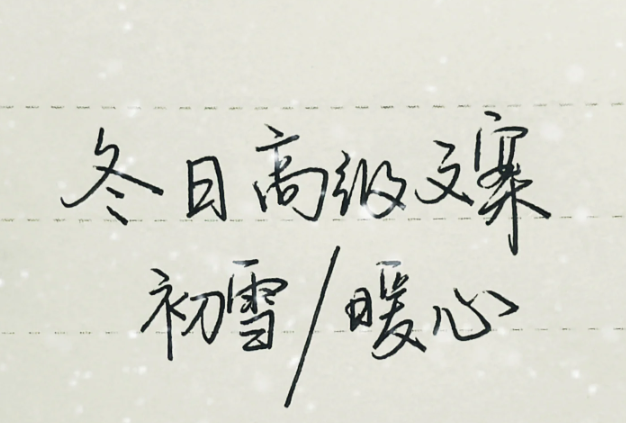 冬日高级文案
初雪/暖心